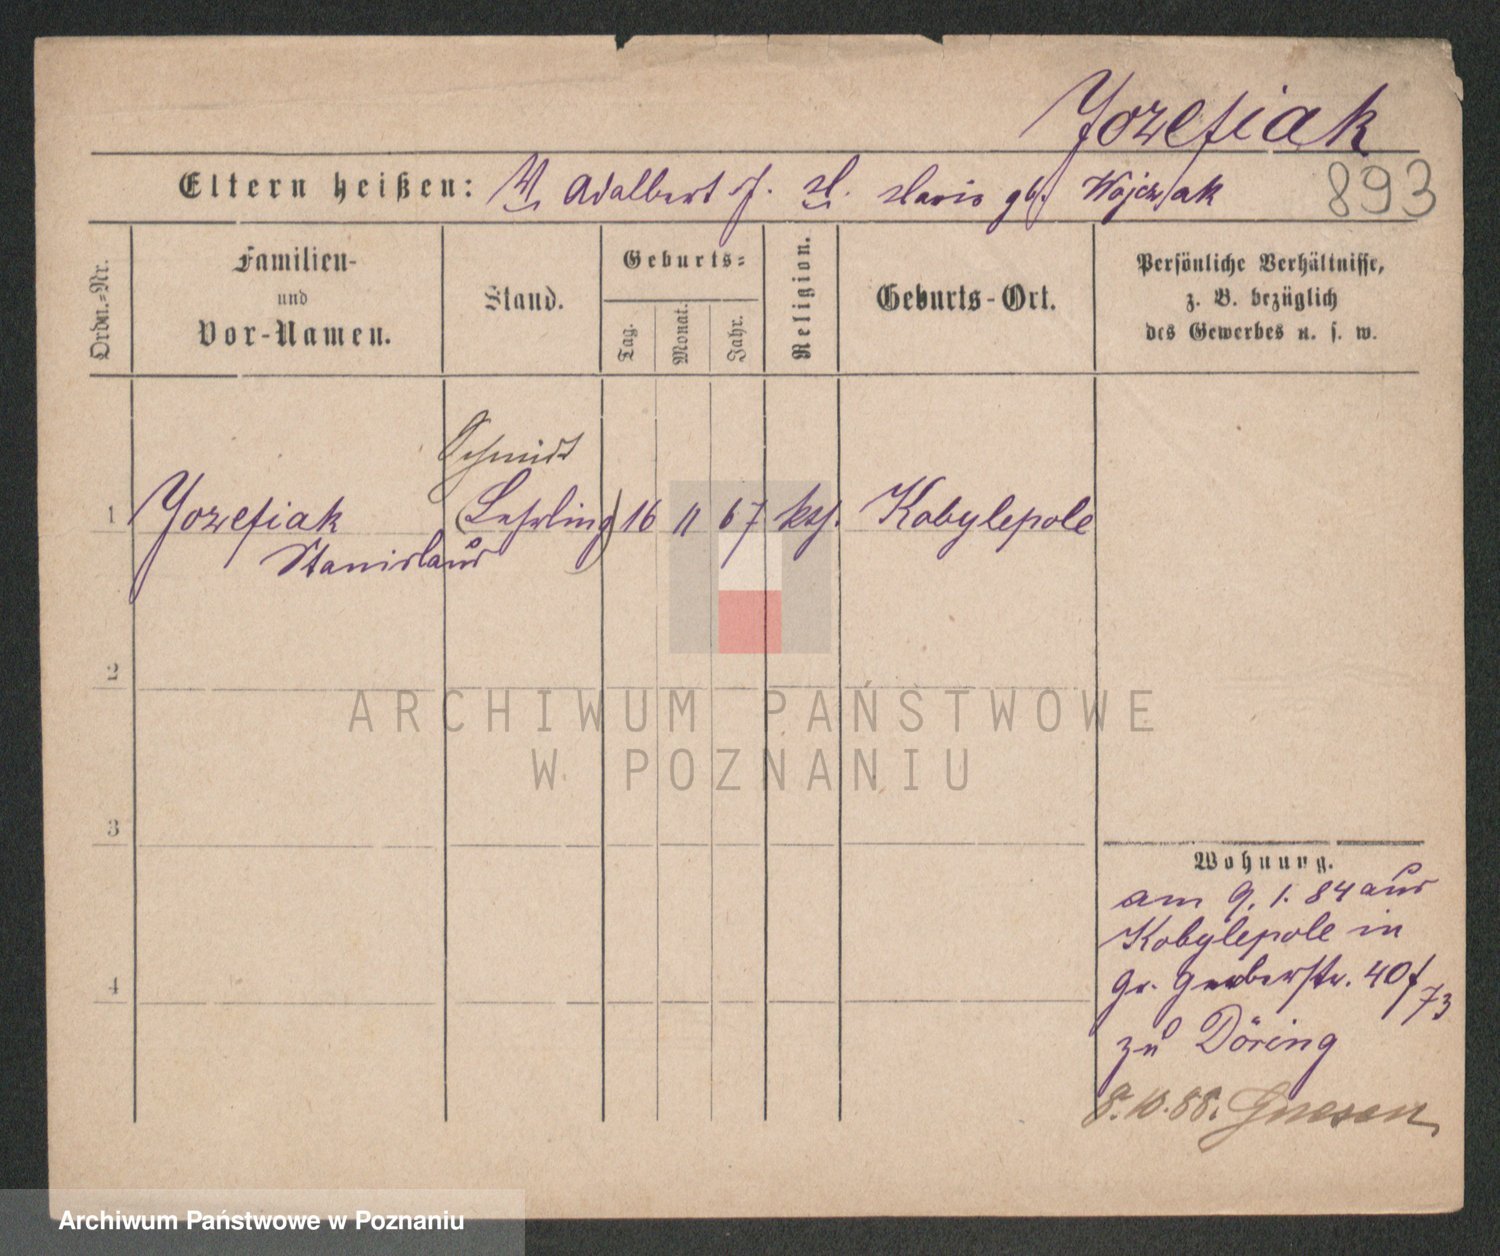 Jozefiak
Eltern heißen: V. Adalbert J. M. Maria gb. Wojczak 893
Ordn.=Nr.
Familien-
und
Vor-Namen.
Stand.
Geburts=
Tag.
Monat.
Jahr.
Religion.
Geburts-Ort.
Persönliche Verhältnisse,
z. B. bezüglich
des Gewerbes u. s. w.
Schmidt
1 Jozefiak (Lehrling) 16 11 67 kth. Kobylepole
Stanislaus
2
3
4
Wohnung.
am 9. 1. 84 aus
Kobylepole in
Gr. Gerberstr. 40 f
73
zu Döring
8.10.88. Gnesen
ARCHIWUM PAŃSTWOWE
W POZNANIU
Archiwum Państwowe w Poznaniu